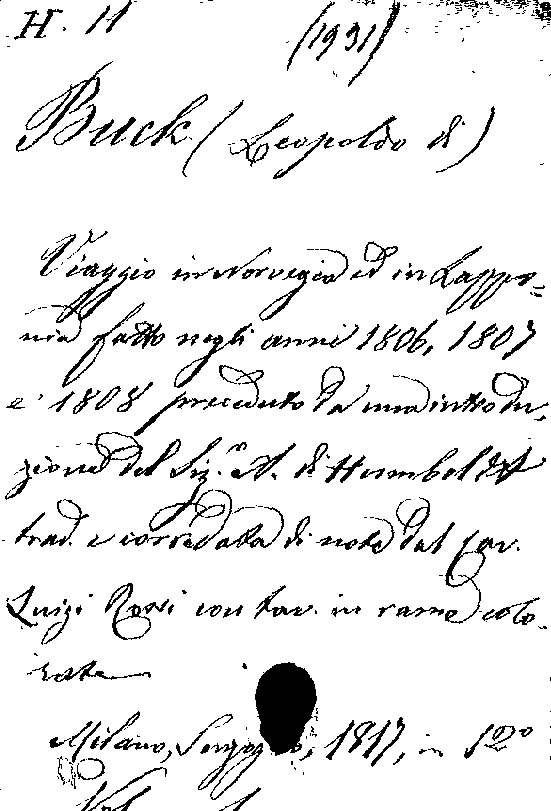 H. 11 (1931)
Buck (Leopoldo di)
Viaggio in Norvegia ed in Lappo=
nia fatto negli anni 1806, 1807
e 1808 preceduto da una introdu-
zione del Sig.r A. di Humboldt
trad. e corredata di note dal Cav.
Luigi Rossi con tav. in rame colo-
rate
Milano, 1817, in 12o
Vol.